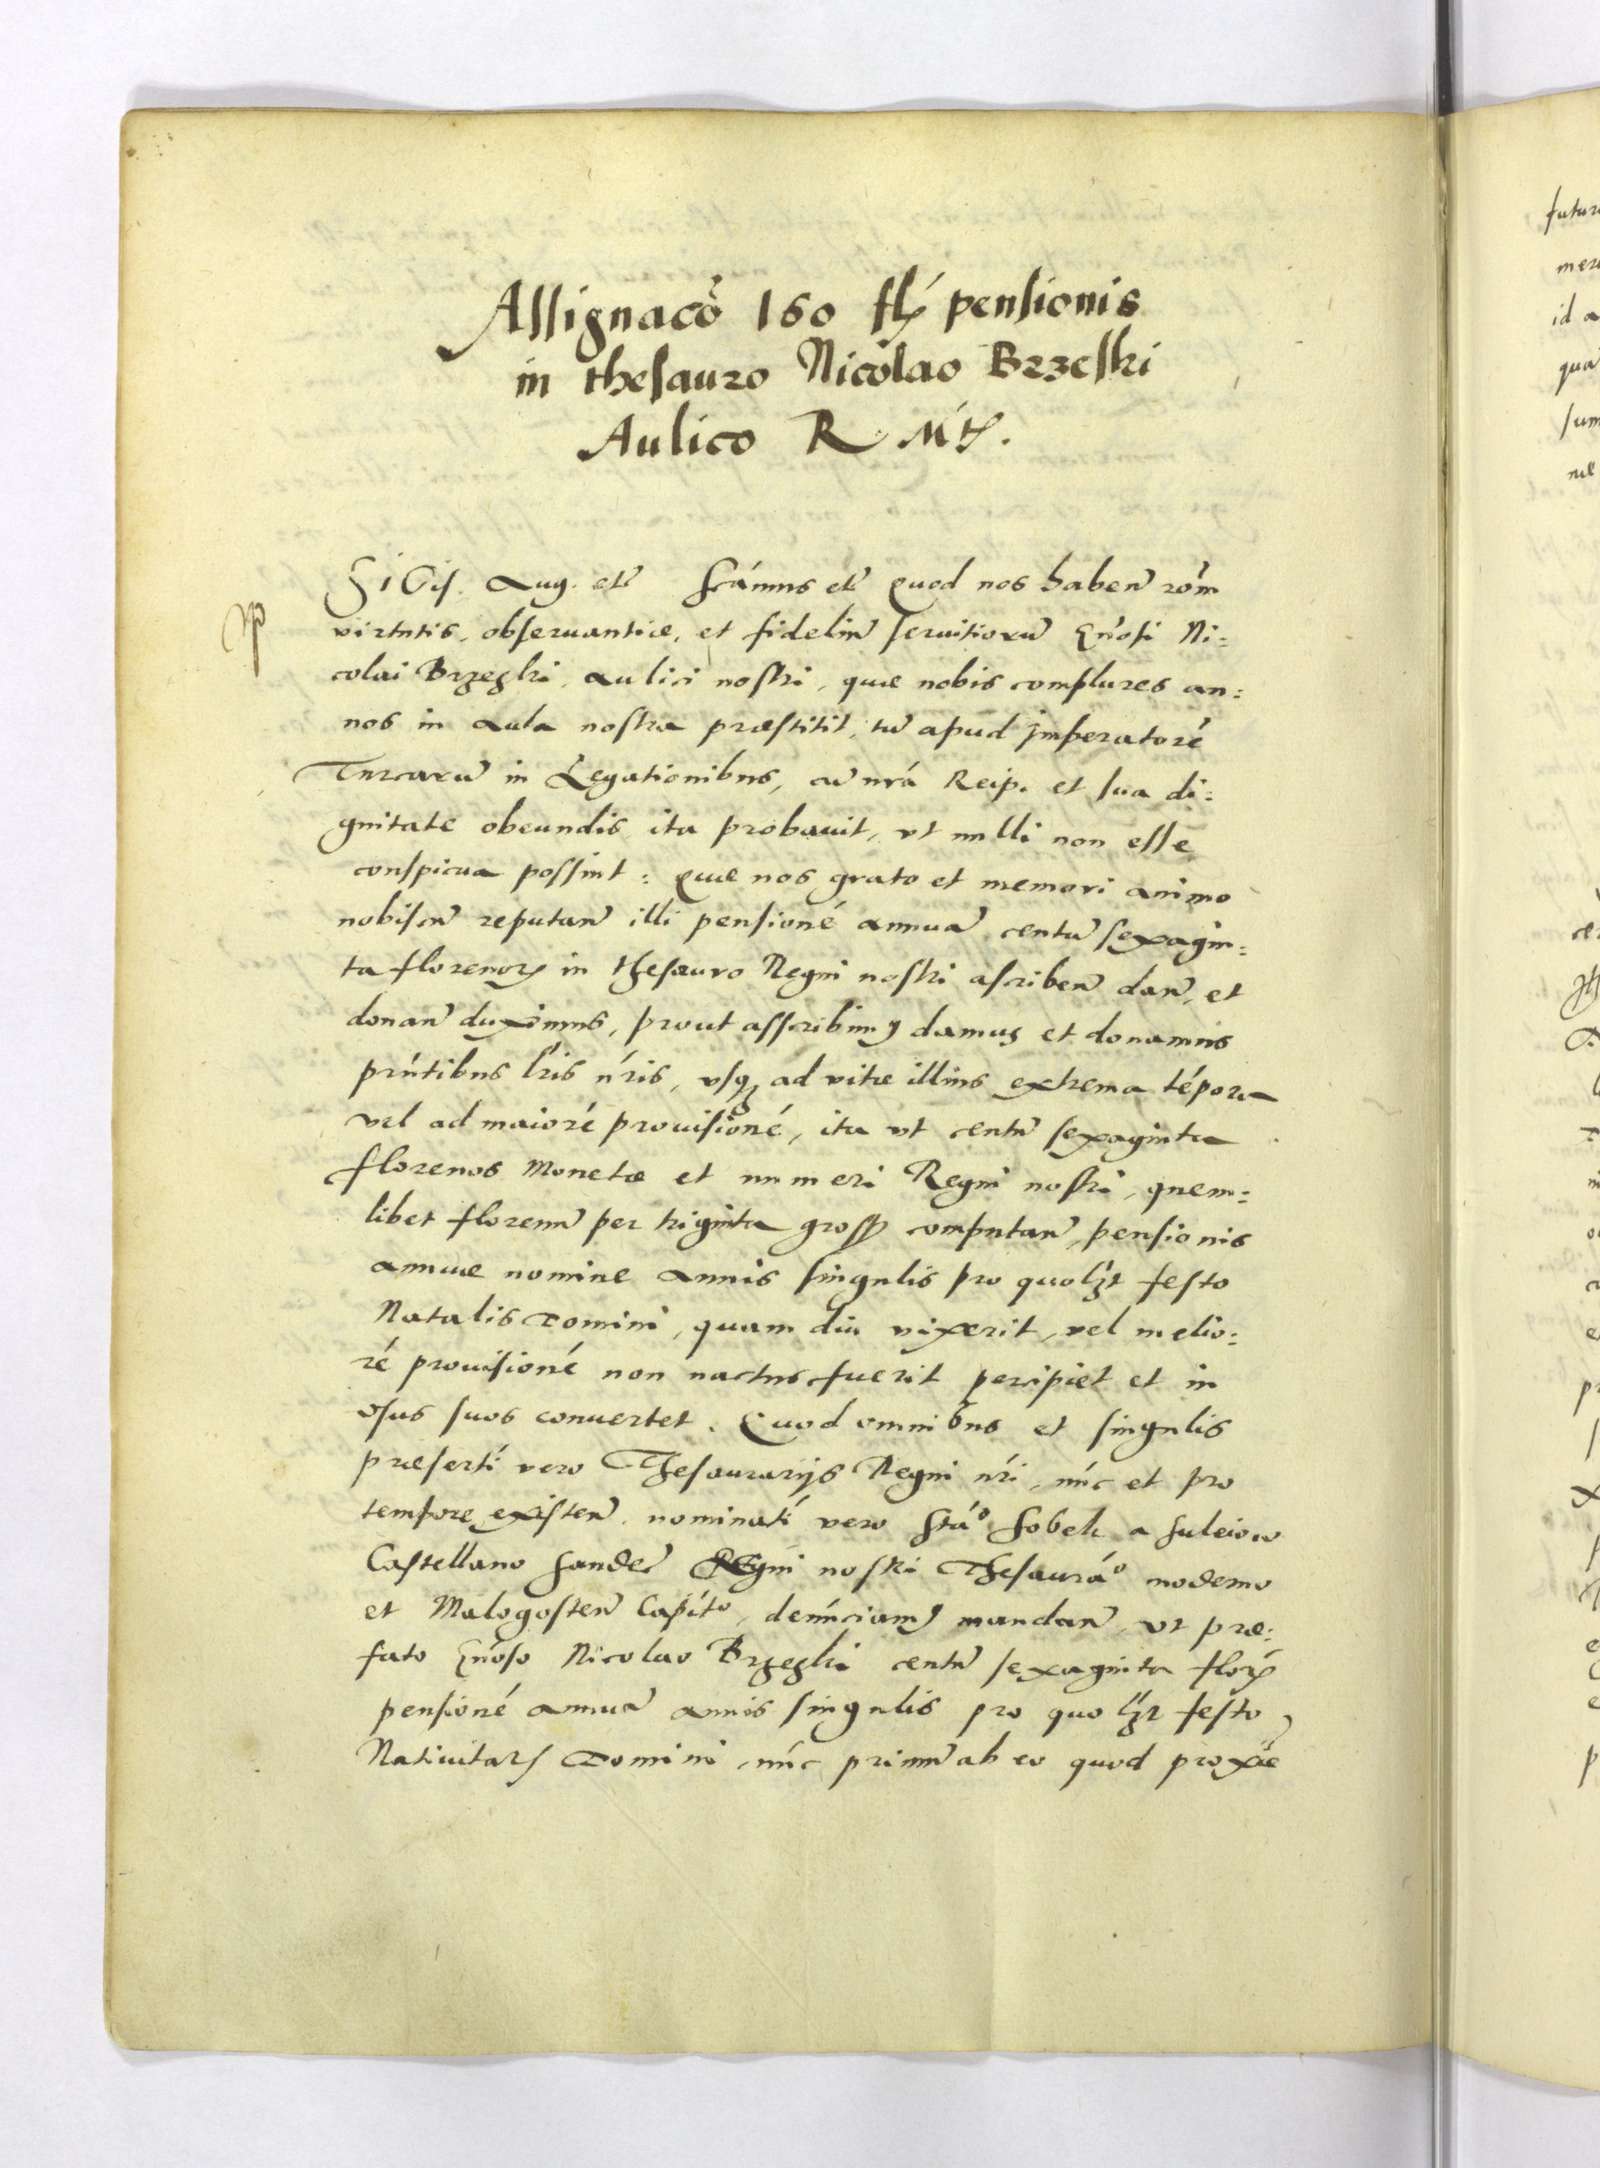 Assignacō 160 flꝫ pensionis
in thesauro Nicolao Brzeski
Aulico R Mt̃.
Sigis. Aug. etc̃ Scámus etc̃ Quod nos haben̄ rōm
virtutis, obseruantiæ, et fideliũ seruitiorũ Gn̄osi Ni:
colai Brzeski, aulici nostri, quæ nobis complures an:
nos in aula nostra præstitit, tũ apud Imperatoré
Turcarũ in Legationibus, cũ nr̃a Reip. et sua di:
gnitate obeundis ita probauit, vt nulli non esse
conspicua possint: Quæ nos grato et memori animo
nobiscũ reputan̄ illi pensioné annuã centũ sexagin:
ta florenorꝫ in thesauro Regni nostri ascriben̄ dan̄, et
donan̄ duximus, prout asscribimꝰ damus et donamus
prńtibus lr̃is nŕis, vsqꝫ ad vitæ illius extrema tépora
vel ad maioré prouisioné, ita vt centũ sexaginta
florenos Monetæ et numeri Regni nostri, quem:
libet florenũ per triginta gross̃ computan̄, pensionis
annuæ nomine annis singulis pro quolꝫt festo
Natalis Domini, quam diu vixerit, vel melio:
ré prouisioné non nactus fuerit percipiet et in
vsus suos conuertet. Quod omnibus et singulis
præsertí vero Thesaurarijs Regni nŕi, núc et pro
tempore existen̄. nominatí vero Stá° Sobek a Suleiow
Castellano Sandec̃ Regni nostri Thesaurá° moderno
et Malogosten̄ Capit°, denúciamꝰ mandan̄, vt præ:
fato Gn̄oso Nicolao Brzeski centũ sexaginta florꝫ
pensioné annuã annis singulis pro quolꝫt festo
Natiuitatꝭ Domini, núc primũ ab eo quod proxiē
futur
mer
id a
qua
sum